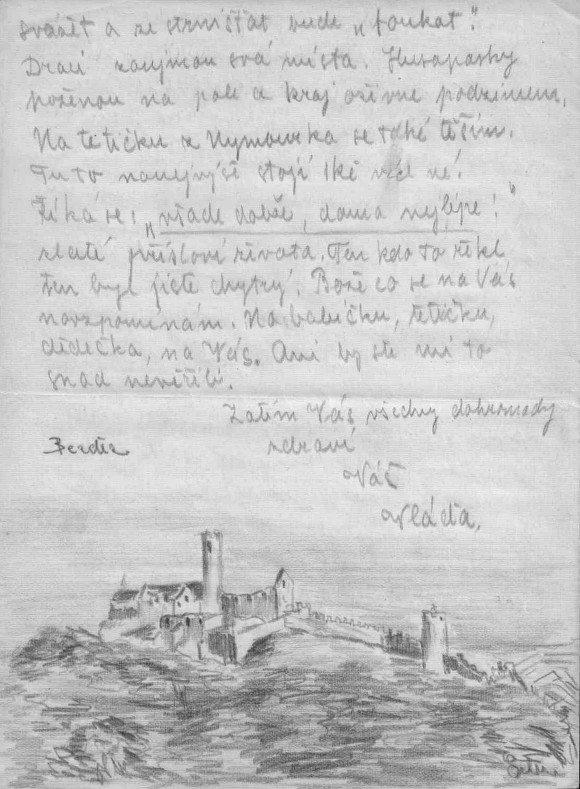 svážet a ze strnišťat bude „foukat".
Draci zaujmou svá místa. Husopasky
poženou na pole a kraj oživne podzimem.
Na tetičku z Nymburska se také těším.
Tu to nanejvýše stojí ské víc né!
Říká se: „všade dobře, doma nejlépe!"
zlaté přísloví života. Ten kdo to řekl,
ten byl jistě chytrý. Bože co se na Vás
navzpomínám. Na babičku, tetičku,
dědečka, na Vás. Ani by ste mi to
snad nevěřili.
Zatím Vás všechny dohromady
zdraví
Váš
Vláďa.
Bezděz